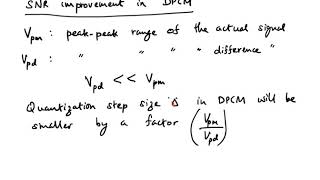 SNR improvement in DPCM
Vpm : peak-peak range of the actual signal
Vpd : " " " " " difference "
Vpd << Vpm
Quantization step size in DPCM will be
smaller by a factor (Vpm/Vpd)